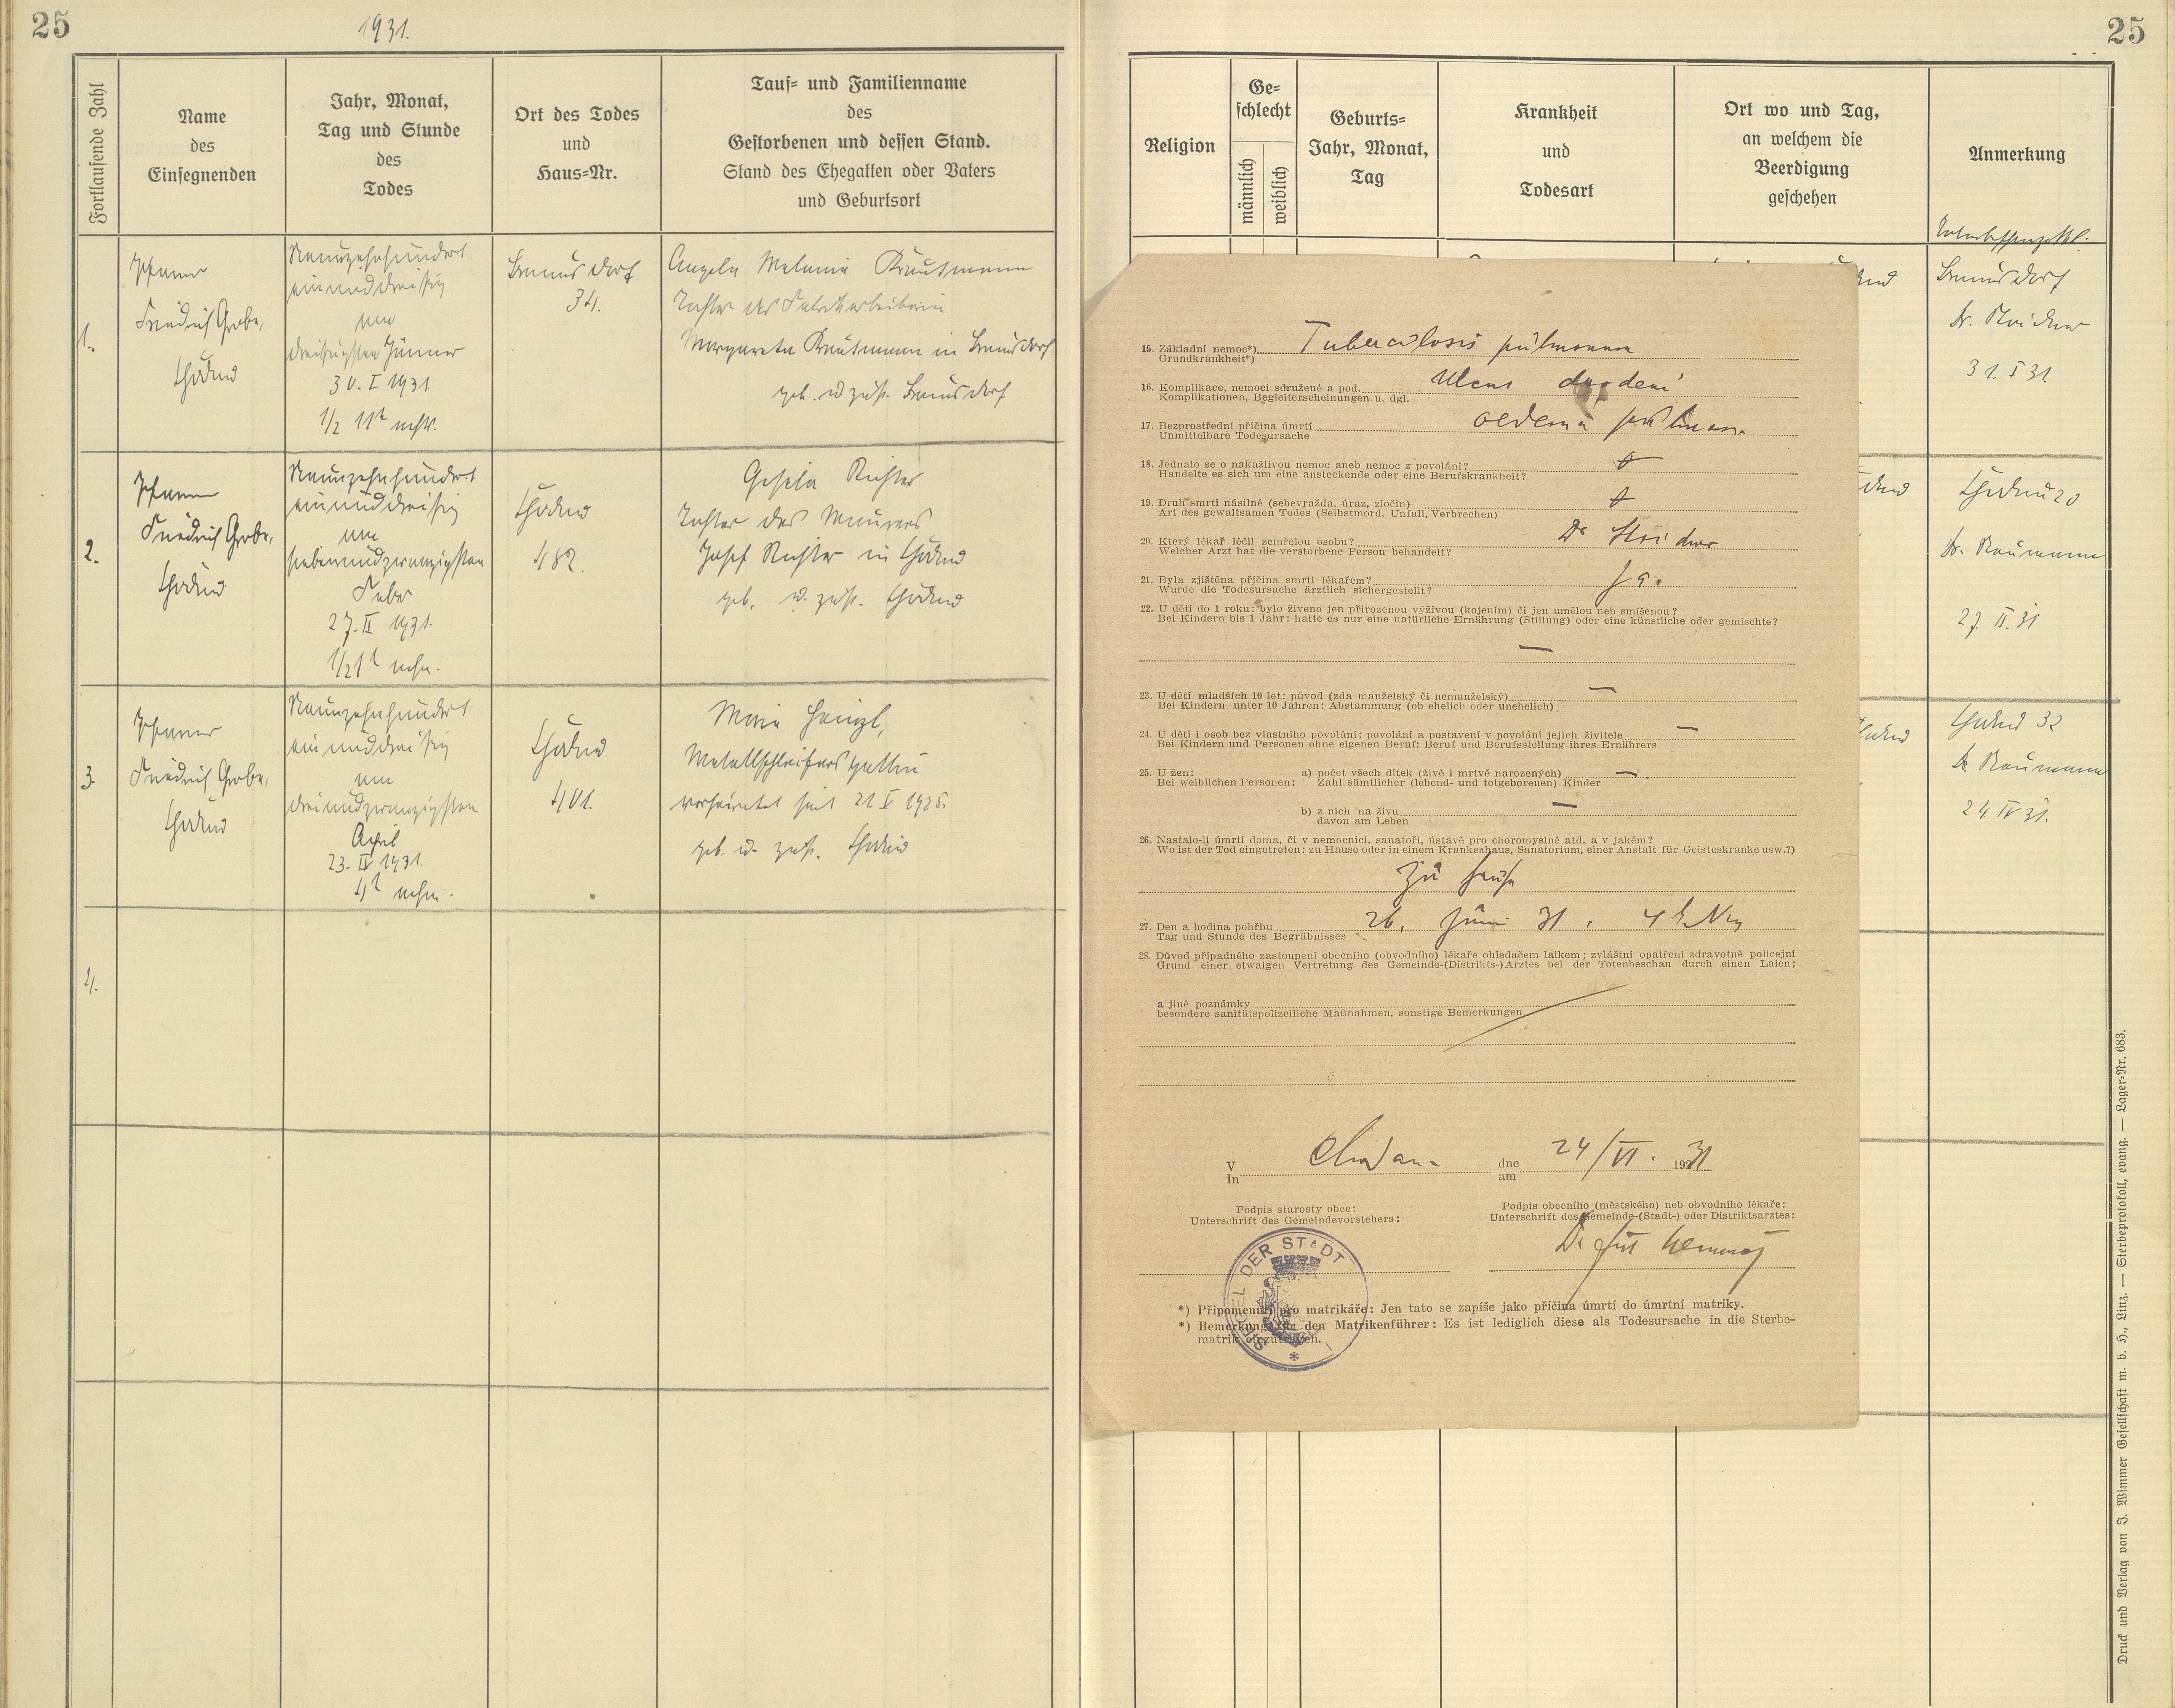 25
1931.
Fortlaufende Zahl
Name
des
Einsegnenden
Jahr, Monat,
Tag und Stunde
des
Todes
Ort des Todes
und
Haus=Nr.
Tauf= und Familienname
des
Gestorbenen und dessen Stand.
Stand des Ehegatten oder Vaters
und Geburtsort
1.
Pfarrer
Friedrich Grobe,
Chodau
Neunzehnhundert
einunddreißig
am
dreißigsten Jänner
30. I 1931.
1/2 11h
34.
Angela Melanie Trautmann
Tochter der Fabrikarbeiterin
Margareta Trautmann in
geb. u. zust.
2.
Pfarrer
Friedrich Grobe,
Chodau
Neunzehnhundert
einunddreißig
am
siebenundzwanzigsten
Feber
27. II 1931.
1/2 1h nchm.
Chodau
482.
Gisela Richter
Tochter des Maurers
Josef Richter in Chodau
geb. u. zust. Chodau
3.
Pfarrer
Friedrich Grobe,
Chodau
Neunzehnhundert
einunddreißig
am
dreiundzwanzigsten
April
23. IV 1931.
4h nchm.
Chodau
401.
Marie
Metallschleifers Gattin
verheiratet seit 21 V 1925.
geb. u. zust. Chodau
4.
25
Religion
Ge=
schlecht
männlich
weiblich
Geburts=
Jahr, Monat,
Tag
Krankheit
und
Todesart
Ort wo und Tag,
an welchem die
Beerdigung
geschehen
Anmerkung
31. I 31.
Chodau 20
Dr. Baumann
27. II. 31
Chodau 32
Dr. Baumann
24 IV 31.
15. Základní nemoc*) Tuberculosis pulmonum
Grundkrankheit*)
16. Komplikace, nemoci sdružené a pod. Ulcus duodeni
Komplikationen, Begleiterscheinungen u. dgl.
17. Bezprostřední příčina úmrtí oedema pulmon.
Unmittelbare Todesursache
18. Jednalo se o nakažlivou nemoc aneb nemoc z povolání?
Handelte es sich um eine ansteckende oder eine Berufskrankheit?
19. Druh smrti násilné (sebevražda, úraz, zločin)
Art des gewaltsamen Todes (Selbstmord, Unfall, Verbrechen)
20. Který lékař léčil zemřelou osobu? Dr
Welcher Arzt hat die verstorbene Person behandelt?
21. Byla zjištěna příčina smrti lékařem? Ja.
Wurde die Todesursache ärztlich sichergestellt?
22. U dětí do 1 roku: bylo živeno jen přirozenou výživou (kojením) či jen umělou neb smíšenou?
Bei Kindern bis 1 Jahr: hatte es nur eine natürliche Ernährung (Stillung) oder eine künstliche oder gemischte?
—
23. U dětí mladších 10 let: původ (zda manželský či nemanželský) —
Bei Kindern unter 10 Jahren: Abstammung (ob ehelich oder unehelich)
24. U dětí i osob bez vlastního povolání: povolání a postavení v povolání jejich živitele —
Bei Kindern und Personen ohne eigenen Beruf: Beruf und Berufsstellung ihres Ernährers
25. U žen: a) počet všech dítek (živě i mrtvě narozených) —
Bei weiblichen Personen: Zahl sämtlicher (lebend- und totgeborenen) Kinder
b) z nich na živu —
davon am Leben
26. Nastalo-li úmrtí doma, či v nemocnici, sanatoři, ústavě pro choromyslné atd. a v jakém?
Wo ist der Tod eingetreten: zu Hause oder in einem Krankenhaus, Sanatorium, einer Anstalt für Geisteskranke usw.?)
Zu Hause
27. Den a hodina pohřbu 26. Juni 31, 4 h Nm
Tag und Stunde des Begräbnisses
28. Důvod případného zastoupení obecního (obvodního) lékaře ohledačem laikem; zvláštní opatření zdravotně policejní
Grund einer etwaigen Vertretung des Gemeinde-(Distrikts-)Arztes bei der Totenbeschau durch einen Laien;
a jiné poznámky
besondere sanitätspolizeiliche Maßnahmen, sonstige Bemerkungen
V Chodau dne 24/VI. 1931
In am
Podpis starosty obce:
Unterschrift des Gemeindevorstehers:
Podpis obecního (městského) neb obvodního lékaře:
Unterschrift des Gemeinde-(Stadt-) oder Distriktsarztes:
SIEGEL DER STADT
*) Připomenutí pro matrikáře: Jen tato se zapíše jako příčina úmrtí do úmrtní matriky.
*) Bemerkung für den Matrikenführer: Es ist lediglich diese als Todesursache in die Sterbe-
matrik einzutragen.
Druck und Verlag von J. Wimmer Gesellschaft m. b. H., Linz. — Sterbeprotokoll, evang. — Lager=Nr. 683.